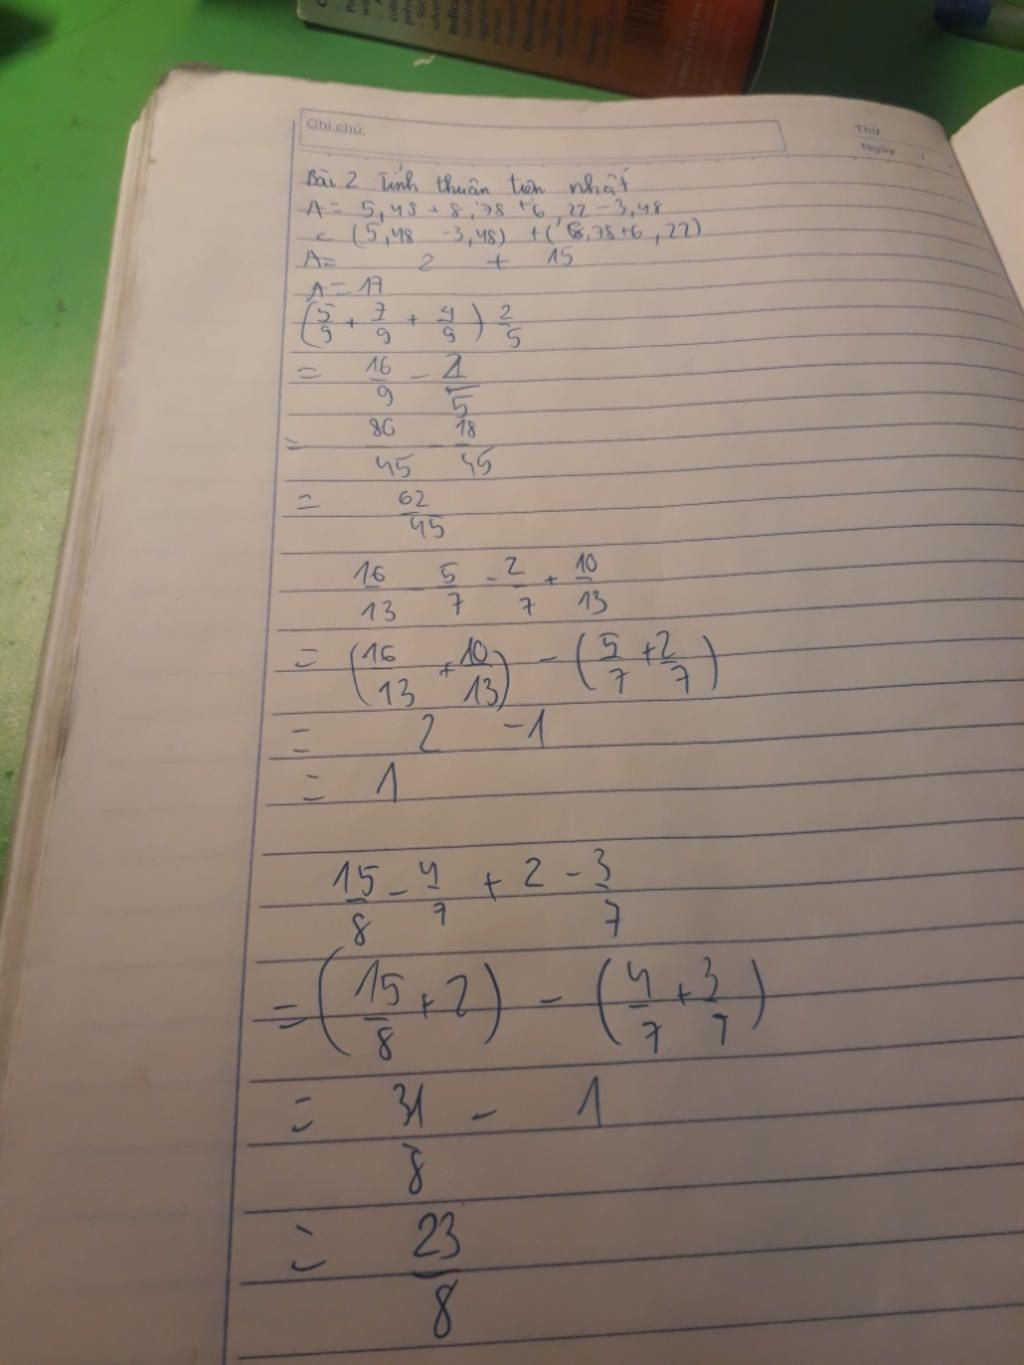 Ghi chú:
Thứ
Ngày /
Bài 2 Tính thuận tiện nhất
A = 5,48 + 8,78 + 6,22 - 3,48
= (5,48 - 3,48) + (8,78 + 6,22)
A = 2 + 15
A = 17
(5/9 + 7/9 + 4/9) 2/5
= 16/9 - 2/5
= 80/45 - 18/45
= 62/45
16/13 - 5/7 - 2/7 + 10/13
= (16/13 + 10/13) - (5/7 + 2/7)
= 2 - 1
= 1
15/8 - 4/7 + 2 - 3/7
= (15/8 + 2) - (4/7 + 3/7)
= 31/8 - 1
= 23/8